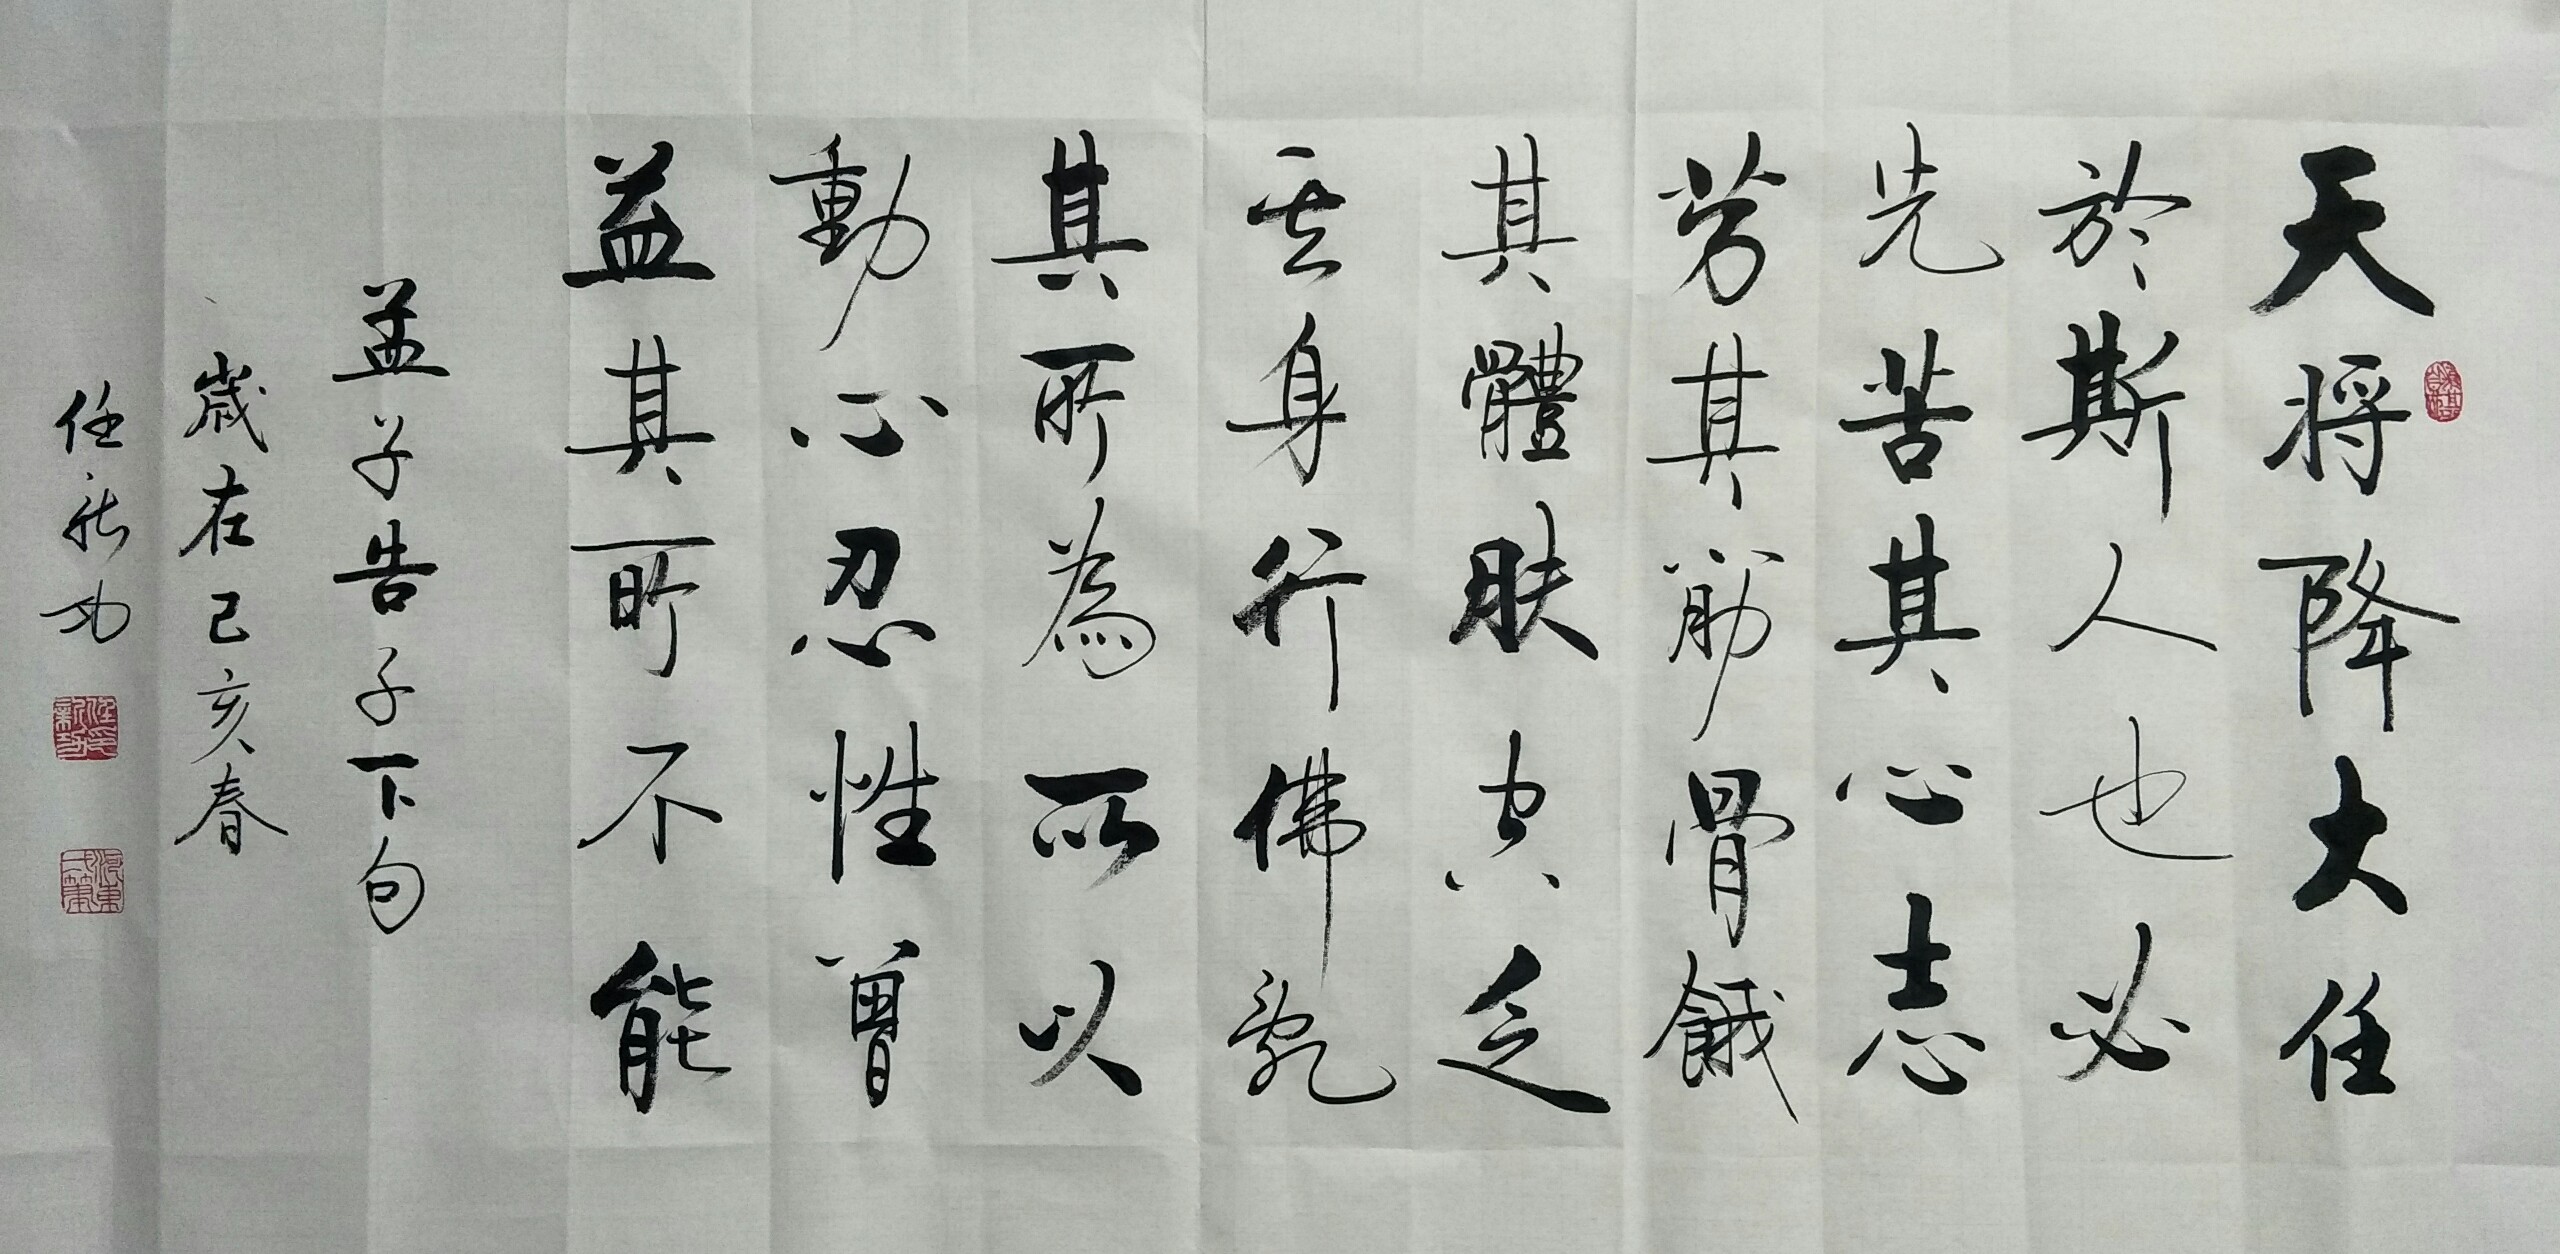 天将降大任
於斯人也必
先苦其心志
劳其筋骨餓
其體肤空乏
其身行佛亂
其所為所以
動心忍性曾
益其所不能
孟子告子下句
歲在己亥春
任新功